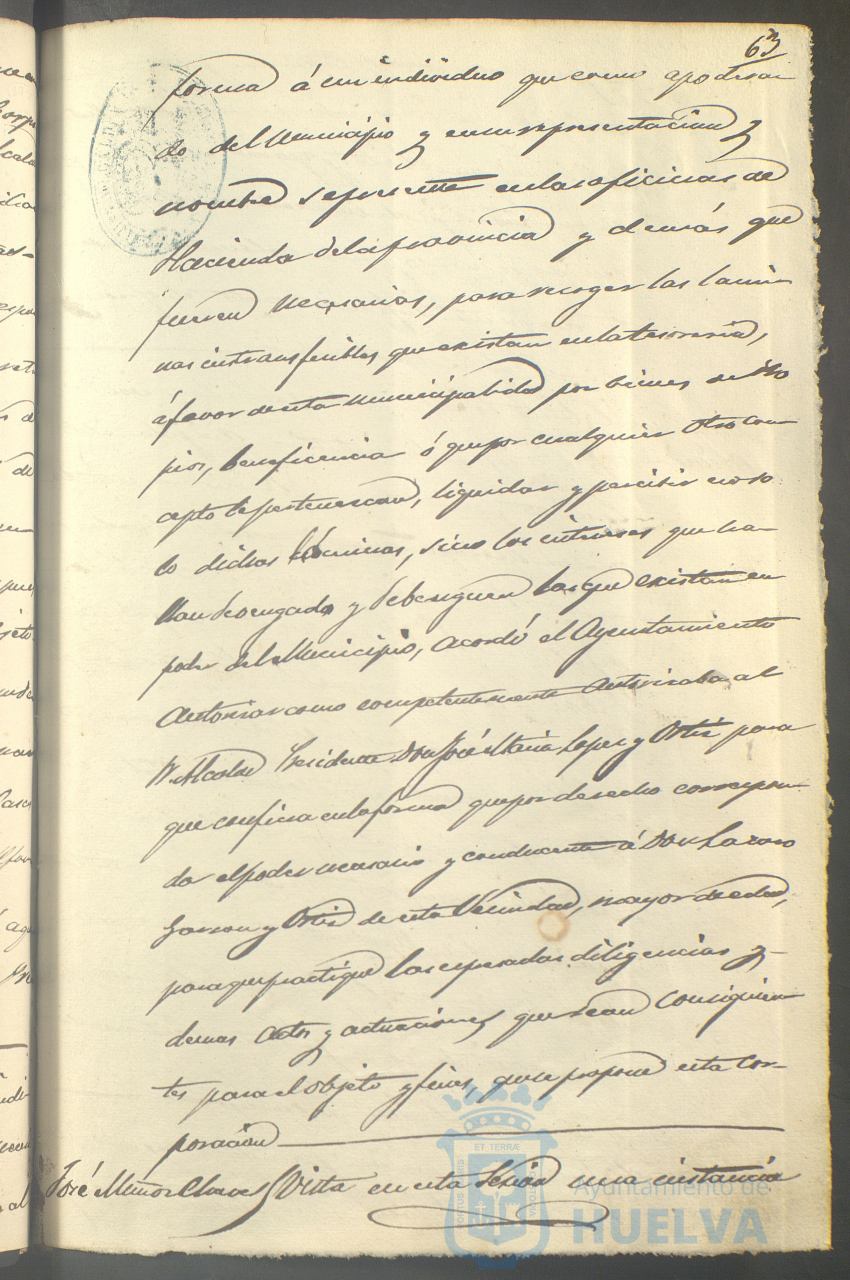 63
forma á un individuo que como apodera-
do del Municipio y en su representacion y
nombre se presente en las oficinas de
Hacienda de la provincia y demás que
fueren necesarias, para recoger las lami-
nas intransferibles que existan en la tesoreria,
á favor de esta Municipalidad por bienes de Pro
pios, beneficencia ó que por cualquier otro con-
cepto le pertenezcan, liquidar y percibir no so
lo dichas láminas, sino los intereses que ha-
llan devengado y debenguen las que existan en
poder del Municipio, acordó el Ayuntamiento
autorizar como competentemente autorizaba al
Sr. Alcalde Presidente Don José Maria Lopez y Ortiz para
que confiera en la forma que por derecho correspon-
da el poder necesario y conducente á Don Lazaro
Garzon y Ortiz de esta Vecindad, mayor de edad,
para que practique las espresadas diligencias y
demas actos y actuaciones que sean consiguien
tes para el objeto y fines, que se propone esta Cor-
poracion
José Muñoz Chaves Vista en esta Sesion una instancia
ET TERRÆ
Ayuntamiento de
HUELVA